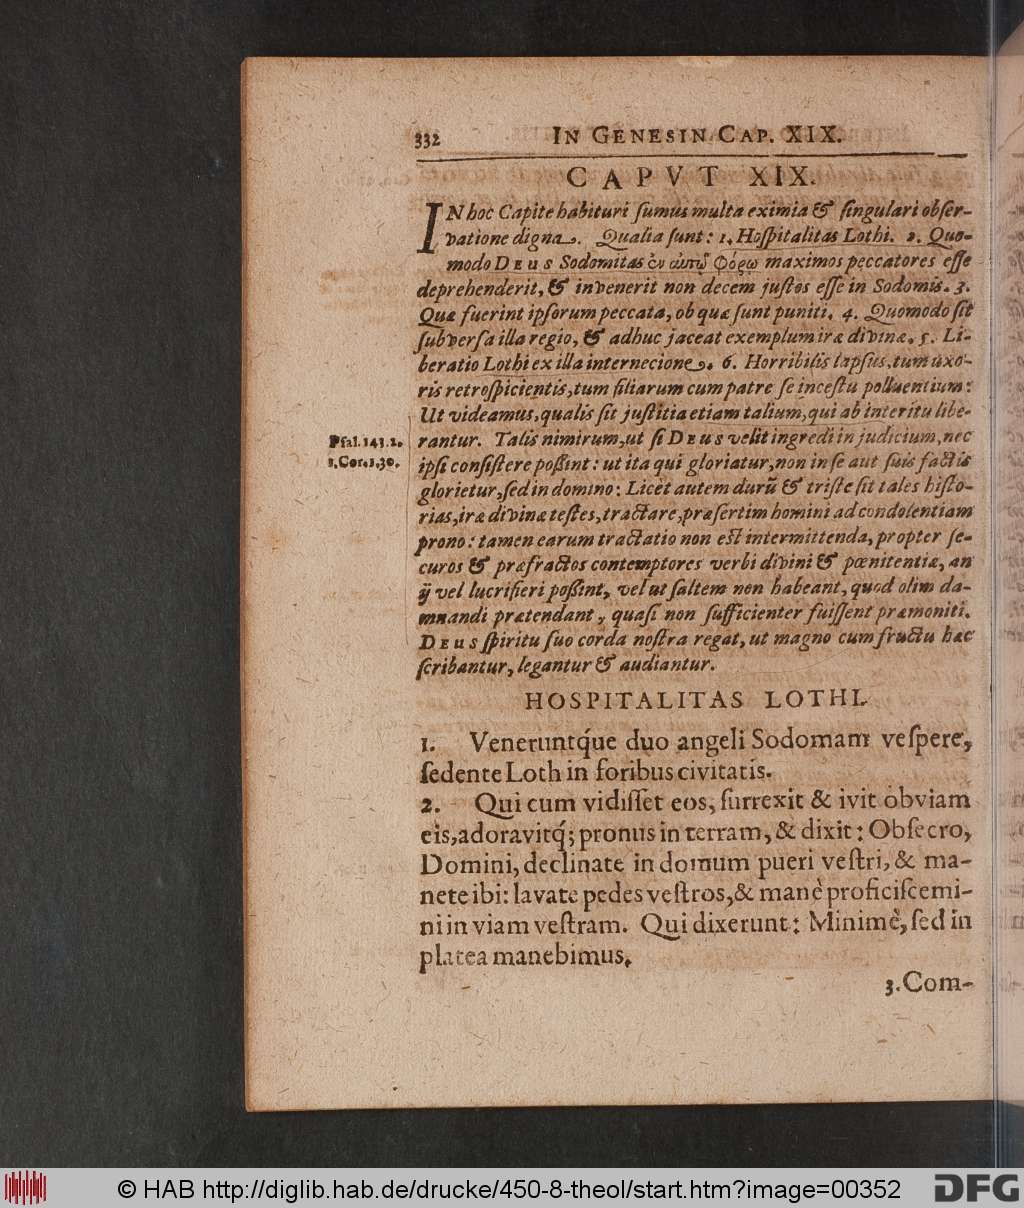 332 IN GENESIN CAP. XIX.
CAPVT XIX.
IN hoc Capite habituri ſumus multa eximia & ſingulari obſer-
vatione digna. Qualia ſunt: 1. Hoſpitalitas Lothi. 2. Quo-
modo DEUS Sodomitas ἐν αὐτῷ φόρῳ maximos peccatores eſſe
deprehenderit, & invenerit non decem juſtos eſſe in Sodomis. 3.
Quæ fuerint ipſorum peccata, ob quæ ſunt puniti. 4. Quomodo ſit
ſubverſa illa regio, & adhuc jaceat exemplum iræ divinæ. 5. Li-
beratio Lothi ex illa internecione. 6. Horribilis lapſus, tum uxo-
ris retroſpicientis, tum filiarum cum patre ſe inceſtu polluentium:
Ut videamus, qualis ſit juſtitia etiam talium, qui ab interitu libe-
Pſal. 143.2. rantur. Talis nimirum, ut ſi DEUS velit ingredi in judicium, nec
1. Cor. 1,30. ipſi conſiſtere poſſint: ut ita qui gloriatur, non in ſe aut ſuis factis
glorietur, ſed in domino: Licet autem durũ & triſte ſit tales hiſto-
rias, iræ divinæ teſtes, tractare, præſertim homini ad condolentiam
prono: tamen earum tractatio non eſt intermittenda, propter ſe-
curos & præfractos contemptores verbi divini & pœnitentiæ, an
ij vel lucrifieri poſſint, vel ut ſaltem non habeant, quod olim da-
mnandi prætendant, quaſi non ſufficienter fuiſſent præmoniti.
DEUS ſpiritu ſuo corda noſtra regat, ut magno cum fructu hæc
ſcribantur, legantur & audiantur.
HOSPITALITAS LOTHI.
1. Veneruntq́ue duo angeli Sodomam veſpere,
ſedente Loth in foribus civitatis.
2. Qui cum vidiſſet eos, ſurrexit & ivit obviam
eis, adoravitq́; pronus in terram, & dixit: Obſecro,
Domini, declinate in domum pueri veſtri, & ma-
nete ibi: lavate pedes veſtros, & manè proficiſcemi-
ni in viam veſtram. Qui dixerunt: Minimè, ſed in
platea manebimus.
3. Com-
© HAB http://diglib.hab.de/drucke/450-8-theol/start.htm?image=00352
DFG